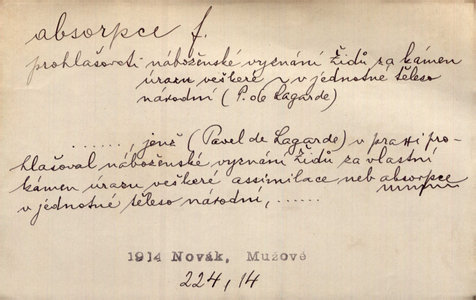 absorpce f.
prohlašovati náboženské vyznání židů za kámen
úrazu veškeré ~ v jednotné těleso
národní (P. de Lagarde)
......., jenž (Pavel de Lagarde) v praxi pro-
hlašoval náboženské vyznání židů za vlastní
kámen úrazu veškeré assimilace neb absorpce
v jednotné těleso národní, ......
1914 Novák, Mužové
224, 14